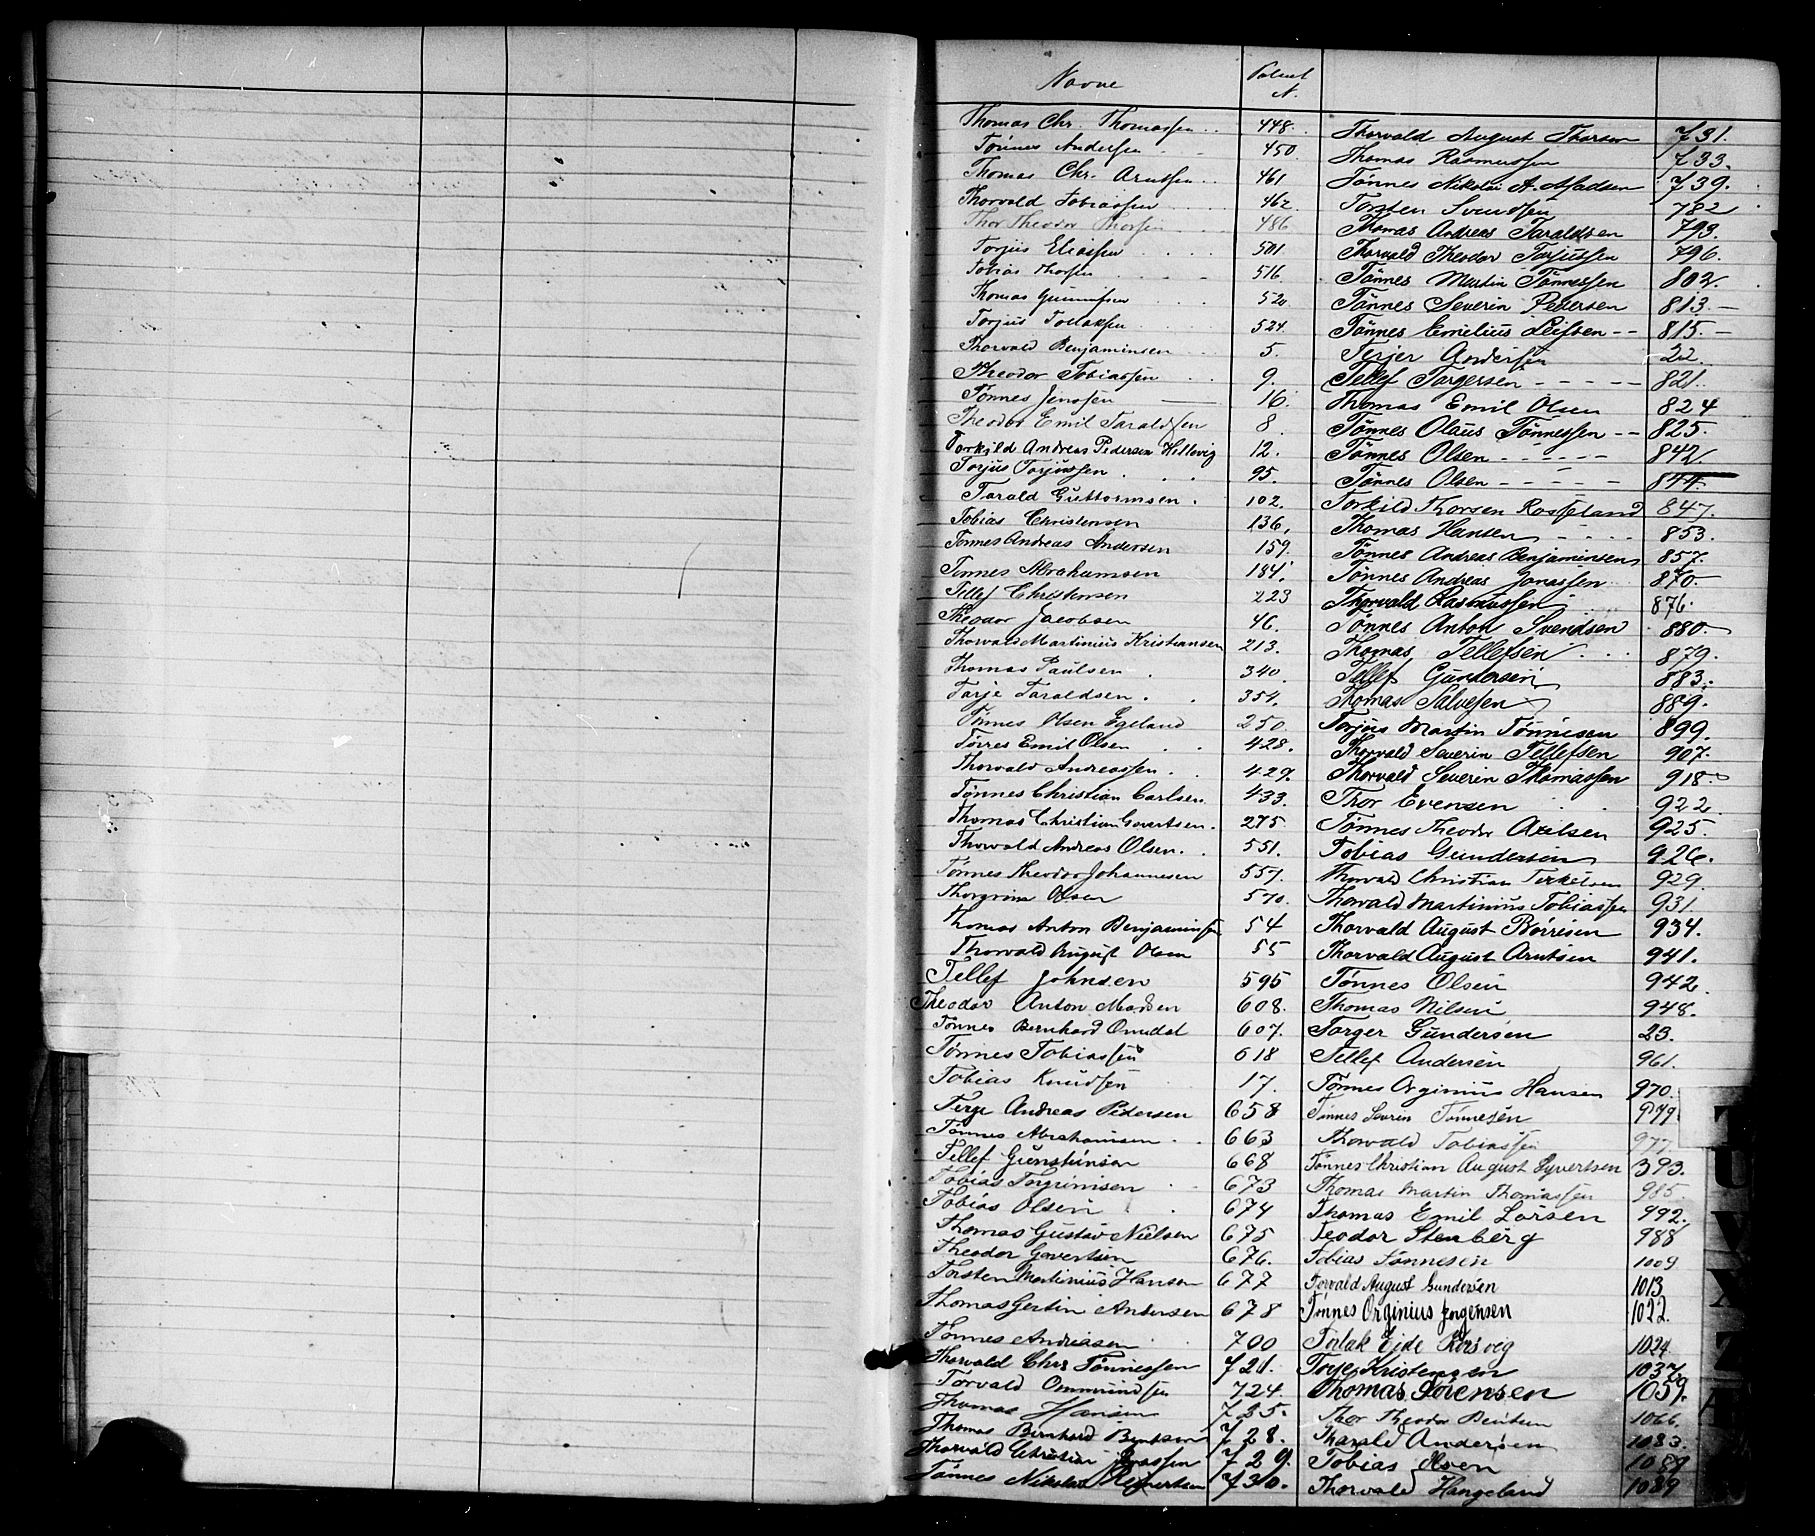 Navne
Patent N.
Thomas Chr. Thomassen 448.
Tönnes Andersen 450.
Thomas Chr. Arntsen 461
Thorvald Tobiassen 462
Thor Theodor Thorsen 486
Torjus Eliassen 501
Tobias Thorsen 516
Thomas Gunnufsen 520
Torjus Tollaksen 524.
Thorvald Benjaminsen 5.
Theodor Tobiassen 9.
Tönnes Jenssen 16.
Theodor Emil Taraldsen 8
Torkild Andreas Pedersen Hellevig 12.
Torjus Torjussen 95.
Tarald Guttormsen 102.
Tobias Christensen 136.
Tönnes Andreas Andersen 159.
Tönnes Abrahamsen 184.
Tellef Christensen 223
Theodor Jacobsen 46.
Thorvald Martinius Kristiansen 213.
Thomas Paulsen 340.
Tarje Taraldsen 354.
Tönnes Olsen Egeland 250
Tórres Emil Olsen 428.
Thorvald Andreassen 429.
Tönnes Christian Carlsen 433.
Thomas Christian Govertsen 275.
Thorvald Andreas Olsen 551.
Tönnes Theodor Johannesen 557.
Thorgrim Olsen 570.
Thomas Anton Benjaminsen 54
Thorvald August Olsen 55
Tellef Johnsen 595
Theodor Anton Madsen 608.
Tönnes Bernhard Omdal 607.
Tönnes Tobiassen 618
Tobias Knudsen 17.
Terje Andreas Pedersen 658
Tönnes Abrahamsen 663
Tellef Gunstensen 668
Tobias Torgrimsen 673
Tobias Olsen 674
Thomas Gustav Nielsen 675
Theodor Govertsen 676.
Torsten Martinius Hansen 677
Thomas Gertin Andersen 678
Tönnes Andreasen 700
Thorvald Chrs Tönnessen 721.
Torvald Ommundsen 724.
Thomas Hansen 725.
Thomas Bernhard Bentsen 728.
Thorvald Christian Jonassen 729.
Tönnes Nikolai Reinertsen 730.
Thorvald August Thorsen 731.
Thomas Rasmussen 733.
Tönnes Nikolai A. Madsen 739.
Torsten Svendsen 782
Thomas Andreas Taraldsen 793.
Thorvald Theodor Torjussen 796.
Tönnes Martin Tönnessen 802.
Tönnes Severin Pedersen 813.
Tönnes Emelius Leifsen 815
Terjer Andersen 22
Tellef Torgersen 821.
Thomas Emil Olsen 824
Tönnes Olaus Tönnessen 825.
Tönnes Olsen 842.
Tönnes Olsen 844.
Torkild Thorsen Rosseland 847.
Thomas Hansen 853.
Tönnes Andreas Benjaminsen 857.
Tönnes Andreas Jonassen 870.
Thorvald Rasmussen 876.
Tönnes Anton Svendsen 880.
Thomas Tellefsen 879.
Tellef Gundersen 883.
Thomas Salvesen 889.
Torjus Martin Tönnesen 899.
Thorvald Severin Tellefsen 907.
Thorvald Severin Thomassen 918.
Thor Evensen 922
Tönnes Theodor Axelsen 925.
Tobias Gundersen 926.
Thorvald Christian Terkelsen 929.
Thorvald Martinius Tobiassen 931.
Thorvald August Börresen 934.
Thorvald August Arntsen 941.
Tönnes Olsen 942.
Thomas Nilsen 948.
Torger Gundersen 23.
Tellef Andersen 961.
Tönnes Orginius Hansen 970.
Tönnes Severin Tönnesen 979
Thorvald Tobiassen 977
Tönnes Christian August Syvertsen 393.
Thomas Martin Thomassen 985.
Thomas Emil Larsen 992.
Teodor Stenberg 988
Tobias Tönnesen 1009
Torvald August Gundersen 1013
Tönnes Orginius Jørgensen 1022.
Torlak Eide Rørsvig 1024.
Torje Kristensen 1037
Thomas Sörensen 1059.
Thor Theodor Bentsen 1066.
Tharald Andersen 1083.
Tobias Olsen 1089
Thorvald Haugeland 1089
T
U
V
X
Z